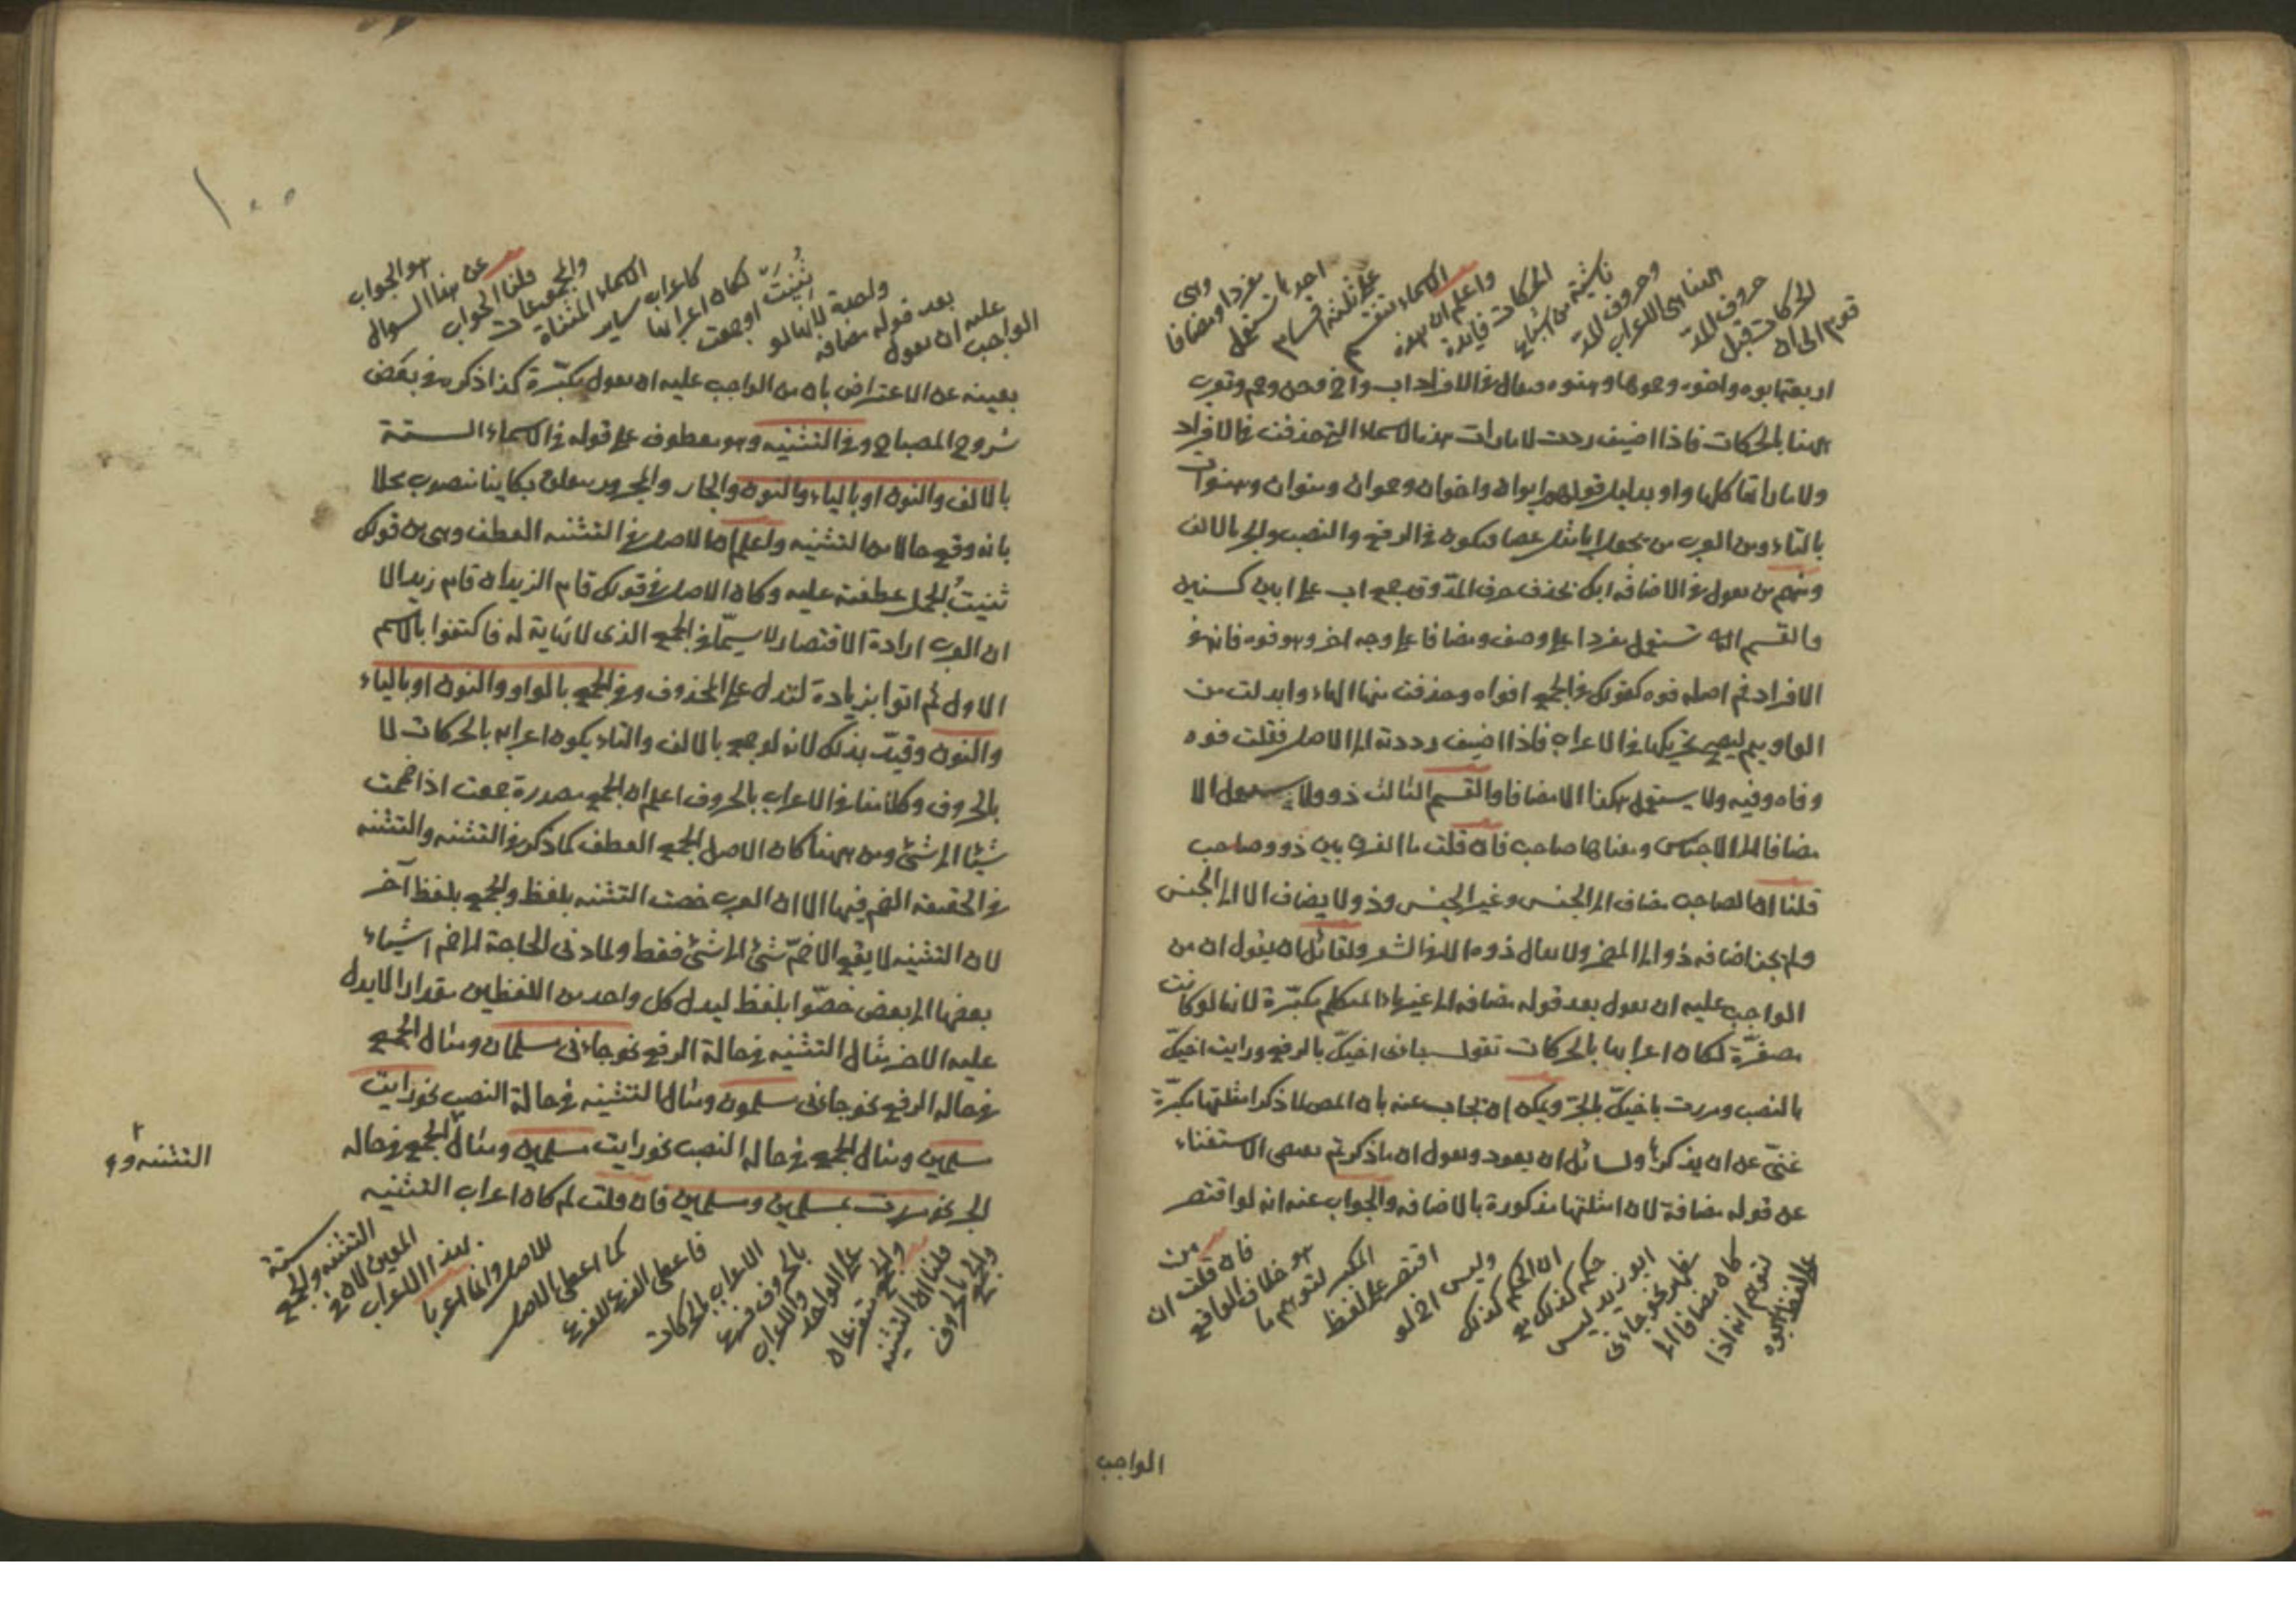 قدم الى ان
الحركات قبل
حروف المد
الاعراب
وحروف المد
ناشية من اشباع
الحركات فايدة
واعلم ان هذه
الاسماء تنقسم
على ثلثة اقسام
احدها تستعمل
مفردا ومضافا
وهى
اربعة ابوه واخوه وحموها وهنوه يقال فى الافراد اب واخ وحم وثوب
بالحركات فاذا اضيف ردت لامات هذه الاسماء التى حذفت فى الافراد
ولاماتها كلها واو بدليل قولهم ابوان واخوان وحموان وهنوان وهنوات
بالتاء ومن العرب من يجعل ابا مثل عصا فيكون فى الرفع والنصب والجر بالالف
ومنهم من يقول فى الاضافة ابك بحذف حرف المد وقد جمع اب على ابين كسنين
والقسم تستعمل مفردا على وصف ومضافا على وجه اخر وهو فوه فانه فى
الافراد فم اصله فوه كقولك فى الجمع افواه وحذفت منها الهاء وابدلت من
الواو ميم ليصح تحريكها فى الاعراب فاذا اضيف رددته الى الاصل فقلت فوه
وفاه وفيه ولا يستعمل هكذا الا مضافا والقسم الثالث ذو ولا يستعمل الا
مضافا الى الاجناس ومعناها صاحب فان قلت ما الفرق بين ذو وصاحب
قلنا ان الصاحب مضاف الى الجنس وغير الجنس وذو لا يضاف الا الى الجنس
ولم يجز اضافة ذو الى المضمر ولا يقال ذوه الا فى الشعر ولقائل ان يقول ان من
الواجب عليه ان يقول بعد قوله مضافة الى غير ياء المتكلم مكبّرة لانها لو كانت
مصغّرة لكان اعرابها بالحركات تقول جاءنى اخيّك بالرفع ورايت اخيّك
بالنصب ومررت باخيّك بالجرّ ويمكن ان يجاب عنه بان المص لما ذكر امثلتها مكبّرة
غنىّ عن ان يذكرها ولسائل ان يعود ويقول ان ما ذكرتم يقتضى الاستغناء
عن قوله مضافة لان امثلتها مذكورة بالاضافة والجواب عنه انه لو اقتصر
على لفظ ابوه
لتوهم انه اذا
كان مضافا الى
مظهر نحو جاءنى
ابو زيد ليس
حكمه كذلك مع
ان الحكم كذلك
وليس اذا لو
اقتصر على لفظ
المكبر لتوهم ما
هو خلاف الواقع
فان قلت ان
من
الواجب
١٠٠
الواجب
عليه ان يقول
بعد قوله مضافة
واحدة لانها لو
ثُنِّيَتْ او جمعت
لكان اعرابها
كاعراب ساير
الاسماء المثناة
والمجموعات
قلنا الجواب
عن هذا السوال
هو الجواب
بعينه عن الاعتراض بان من الواجب عليه ان يقول مكبّرة كذا ذكره فى بعض
شروح المصباح وفى التثنية وهو معطوف على قوله فى الاسماء الستة
بالالف والنون او بالياء والنون والجار والمجرور متعلق بكاينا منصوب محلا
بانه وقع حالا من التثنية واعلم ان الاصل فى التثنية العطف وهى من قولك
ثنيت الحبل عطفته عليه وكان الاصل فى قولك قام الزيدان قام زيد الا
ان العرب ارادة الاقتصار لا سيّما فى الجمع الذى لا نهاية له فاكتفوا بالاسم
الاول ثم اتوا بزيادة لتدل على المحذوف وفى الجمع بالواو والنون او بالياء
والنون وقيّد بذلك لانه لو جمع بالالف والتاء يكون اعرابه بالحركات لا
بالحروف وكلامنا فى الاعراب بالحروف اعلم ان الجمع مصدره جمعت اذا ضممت
شيئا الى شئ ومن ههنا كان الاصل الجمع العطف كما ذكر فى التثنية والتثنية
فى الحقيقة الضم فيها الا ان العرب خصت التثنية بلفظ والجمع بلفظ آخر
لان التثنية لا يقع الا ضمّ شئ الى شئ فقط ولما دعى الحاجة الى ضم اشياء
بعضها الى بعض خصّوا بلفظ ليدل كل واحد من اللفظين مقدارا لا يدل
عليه الاخر مثال التثنية فى حالة الرفع نحو جاءنى مسلمان ومثال الجمع
فى حالة الرفع نحو جاءنى مسلمون ومثال التثنية فى حالة النصب نحو رايت
مسلمين ومثال الجمع فى حالة النصب نحو رايت مسلمين ومثال ٢ الجمع فى حالة
٢ التثنية و
الجر نحو مررت بمسلمين ومسلمين فان قلت لم كان اعراب التثنية
والجمع بالحروف
قلنا ان التثنية
والجمع متفرعان
على الواحد
والاعراب
بالحروف فرع
الاعراب بالحركات
فاعطى الفرع للفرع
كما اعطى الاصل
للاصل وانما اعربا
بهذا الاعراب
المعين لان فى
التثنية والجمع
ستة